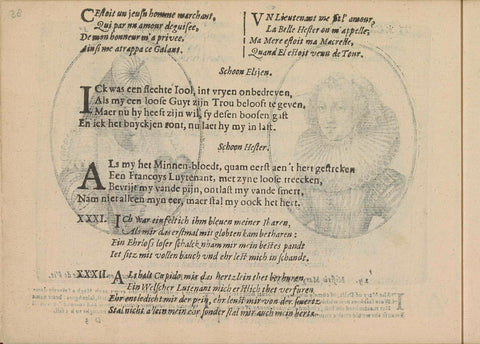 C'Estoit un jeusn homme marchant,
Qui par un amour deguisee,
De mon honneur m'a privee,
Ainsi me atrappa ce Galant.
VN Lieutenant me fit l'amour,
La Belle Hester on m'appelle,
Ma Mere estoit ma Macrelle,
Quand El estoit venu de Tour.
Schoon Elsjen.
ICk was een slechte Sool, int vryen onbedreven,
Als my een loose Guyt zijn Trou belooft te geven,
Maer nu hy heeft zijn wil, sy desen boosen gast
En ick het buyckjen ront, nu laet hy my in last.
Schoon Hester.
ALs my het Minnen-bloedt, quam eerst aen't hert gestreken
Een Francoys Luytenant, met zyne loose treecken,
Bevrijt my vande pijn, ontlast my vande smert,
Nam niet alleen myn eer, maer stal my oock het hert.
XXXI. Ich war einfeltich ihm bleuen meiner Jharen,
Als mir das erstmal mit globten kam betharen:
Ein Ehrloss loser schalck, nham mir mein bestes pandt
Jet sitz mit vollen bauch und ehr lest mich in schandt.
XXXII. Als halt Cupido, mir das hertzlein thet berhuren,
Ein Welscher Lutenant mich erstlich thet verfuren,
Ehr entledicht mir der pein, ehr leust mir von der smertz
Stal nicht alein mein eir sonder stal mir auch mein hertz.